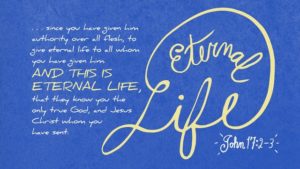 . . . since you have given him
authority over all flesh, to
give eternal life to all whom
you have given him.
AND THIS IS
ETERNAL LIFE,
that they know you the
only true God, and Jesus
Christ whom you
have sent.
Eternal
Life
John 17:2-3